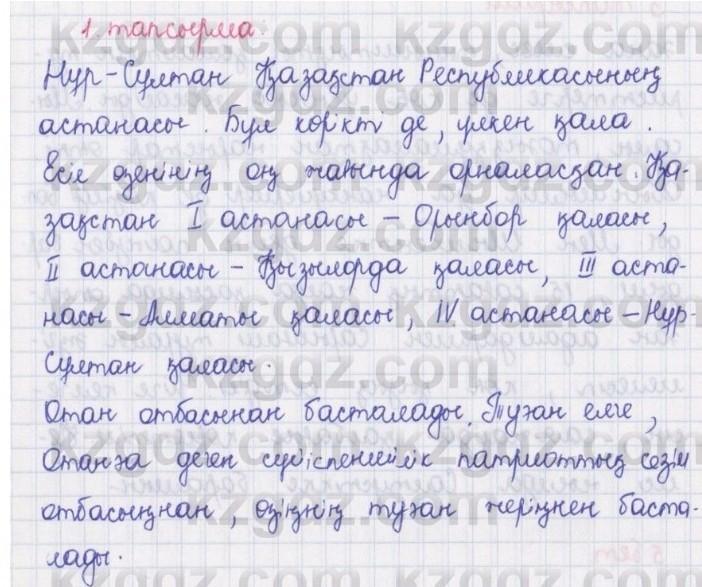 1. тапсырма.
Нұр-Сұлтан Қазақстан Республикасының
астанасы. Бұл көрікті де, үлкен қала.
Есіл өзенінің оң жағында орналасқан. Қа-
зақстан I астанасы – Орынбор қаласы,
II астанасы – Қызылорда қаласы, III аста-
насы – Алматы қаласы, IV астанасы – Нұр-
Сұлтан қаласы.
Отан отбасынан басталады. Туған елге,
Отанға деген сүйіспеншілік патриоттық сезім
отбасыңнан, өзіңнің туған жеріңнен баста-
лады.
kzgdz.com